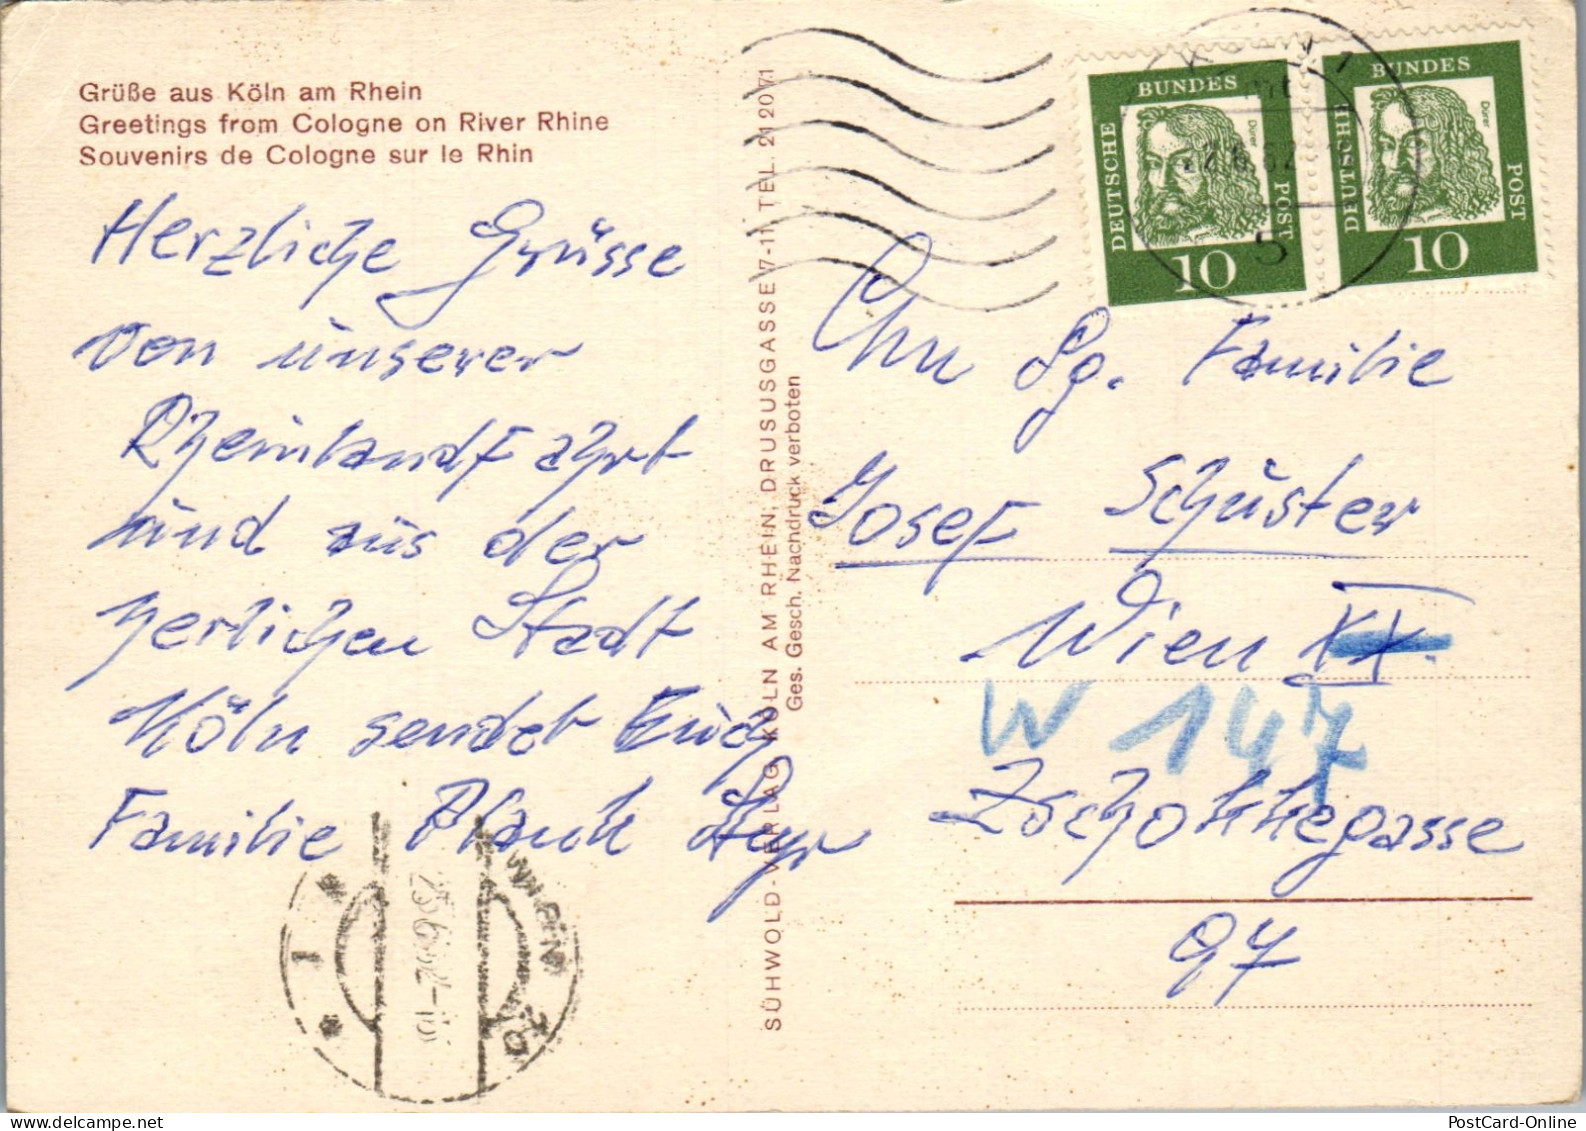 Grüße aus Köln am Rhein
Greetings from Cologne on River Rhine
Souvenirs de Cologne sur le Rhin
Herzliche Grüsse
von unserer
Rheinlandfahrt
und aus der
herlichen Stadt
Köln sendet Euch
Familie Plank Steyr
SÜHWOLD-VERLAG KÖLN AM RHEIN, DRUSUSGASSE 7-11, TEL. 21 20 71
Ges. Gesch. Nachdruck verboten
DEUTSCHE BUNDES POST
Dürer
10
DEUTSCHE BUNDES POST
Dürer
10
5
An Sg. Familie
Josef Schuster
Wien XX.
W 147
Zschokkegasse
97
1
PostCard-Online